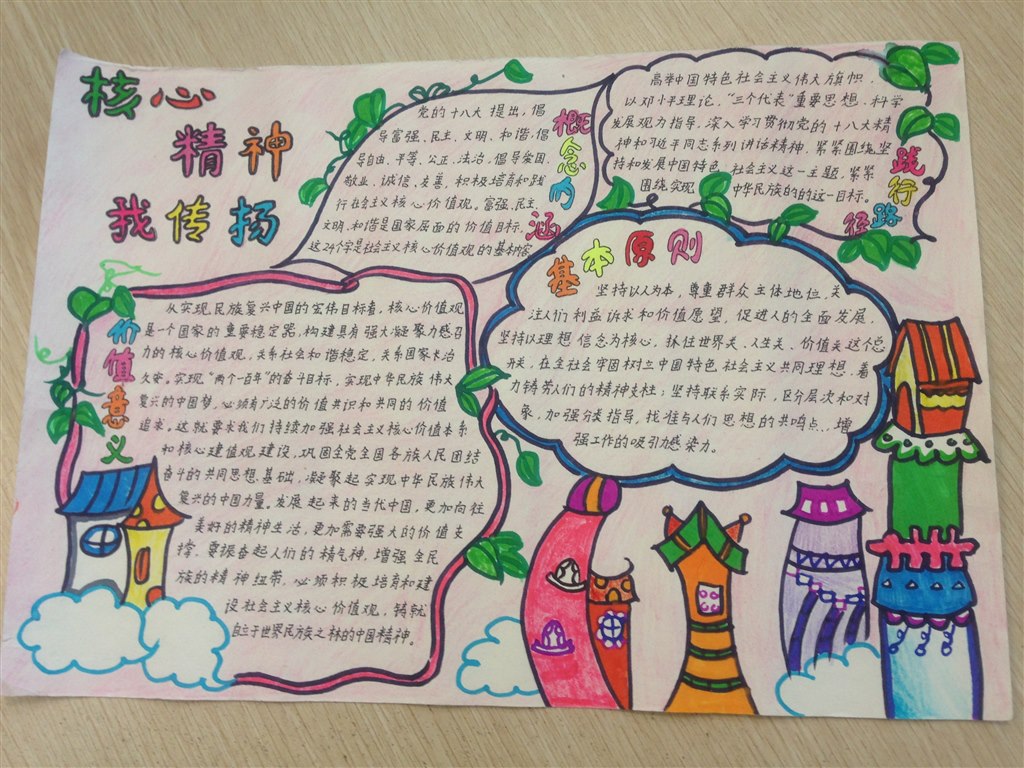 核心
精神
我传扬
概念内涵
党的十八大提出,倡
导富强、民主、文明、和谐,倡
导自由、平等、公正、法治,倡导爱国、
敬业、诚信、友善,积极培育和践
行社会主义核心价值观。富强、民主、
文明、和谐是国家层面的价值目标,
这24个字是社会主义核心价值观的基本内容
践行路径
高举中国特色社会主义伟大旗帜,
以邓小平理论,“三个代表”重要思想,科学
发展观为指导,深入学习贯彻党的十八大精
神和习近平同志系列讲话精神,紧紧围绕坚
持和发展中国特色社会主义这一主题,紧紧
围绕实现中华民族的的这一目标。
基本原则
坚持以人为本,尊重群众主体地位,关
注人们利益诉求和价值愿望,促进人的全面发展,
坚持以理想信念为核心,抓住世界关、人生关、价值关这个总
开关,在全社会牢固树立中国特色社会主义共同理想,着
力铸劳人们的精神支柱;坚持联系实际,区分层次和对
象,加强分类指导,找准与人们思想的共鸣点、增
强工作的吸引力感染力。
价值意义
从实现民族复兴中国的宏伟目标看,核心价值观
是一个国家的重要稳定器,构建具有强大凝聚力感召
力的核心价值观,关系社会和谐稳定,关系国家长治
久安。实现“两个一百年”的奋斗目标,实现中华民族伟大
复兴的中国梦,必须有广泛的价值共识和共同的价值
追求。这就要求我们持续加强社会主义核心价值体系
和核心建值观建设,巩固全党全国各族人民团结
奋斗的共同思想基础,凝聚起实现中华民族伟大
复兴的中国力量。发展起来的当代中国,更加向往
美好的精神生活,更加需要强大的价值支
撑,要振奋起人们的精气神,增强全民
族的精神纽带,必须积极培育和建
设社会主义核心价值观,铸就
自立于世界民族之林的中国精神。